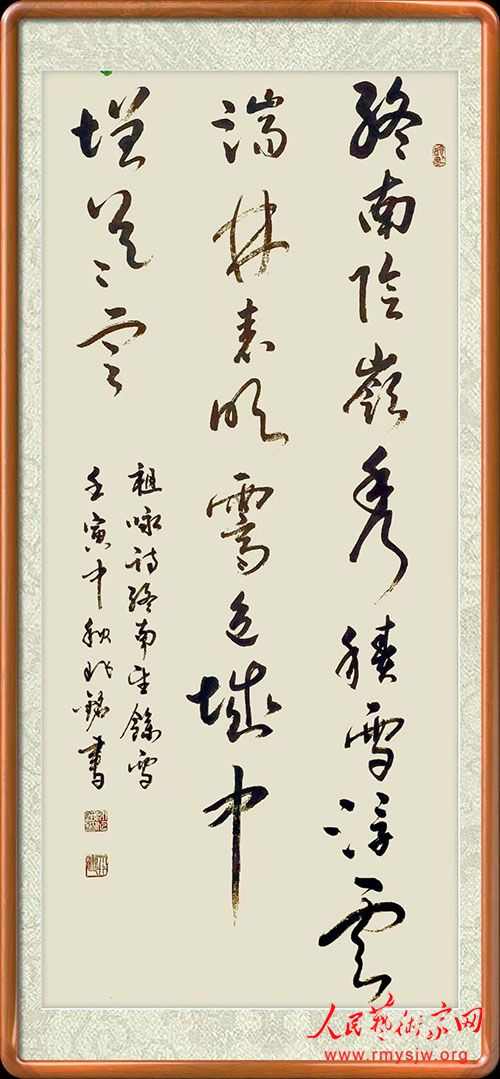 終南陰嶺秀積雪浮雲
端林表明霽色城中
增暮寒
祖咏詩終南望餘雪
壬寅中秋銘書
人民藝術家网
www.rmysjw.org